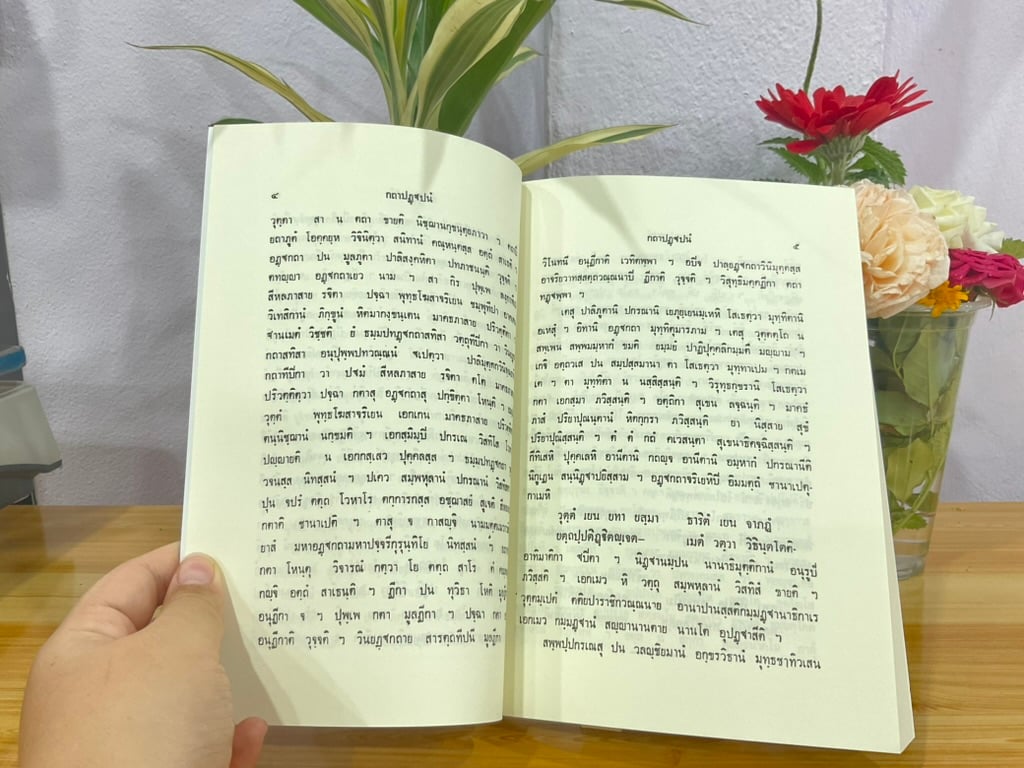 ๔ กถาปฏฺฐปนํ
วุตฺตา สา น คถา ชายติ นิชฺฌานกฺขนฺตุภาวา ฯ
ยถาภูตํ โอคฺคยฺห วิจินิตฺวา สนิทานํ คณฺหนฺตสฺส อตฺถํ
อฏฺฐกถา ปน มูลภูตา ปาลิสงฺคหิตา ปทภาชนนฺติ วุจฺจติ
คทญฺญา อฏฺฐกถาเยว นาม ฯ สา กิร ปุพฺเพ
สีหลภาสาย รจิตา ปจฺฉา พุทฺธโฆสาจริเยน ชมฺพุทีปา
วิเทสิกานํ ภิกฺขูนํ หิตมากงฺขนฺเตน มาคธภาสาย ปริวตฺติตา
ฐานเมตํ วิชฺชติ ยํ ธมฺมปทฏฺฐกถาสทิสา วตฺถุทีปิกา วา
กถาสทิสา อนุปุพฺพปทวณฺณนํ ฐเปตฺวา
กถาทีปิกา วา ปฐมํ สีหลภาสาย รจิตา ตโต
ปริวตฺติตฺวา ปจฺฉา กตาสุ อฏฺฐกถาสุ ปกฺขิตฺตา โหนฺติ ฯ
วุตฺตํ พุทฺธโฆสาจริเยน เอกเกน มาคธภาสาย
คนฺนิชฺฌานํ นกฺขมติ ฯ เอกสฺมิมฺปิ ปกรเณ วิสทิโส
ปญฺญายติ น เอกกสฺเสว ปุคฺคลสฺส ฯ ธมฺมปทฏฺฐกถา
วจนสฺส นิทสฺสนํ ฯ ปเตว สมฺพหุลานํ ปกรณานํ
ปุน จปรํ ตตฺถ โวหาโร ตกฺการกสฺส อชฺฌาสยํ สูเจติ
กตาติ ชานาเปติ ฯ ตาสุ จ กาสญฺจิ
ยาสํ มหาอฏฺฐกถามหาปจฺจรีกุรุนฺทิโย นิทสฺสนํ ฯ
กตา โหนฺตุ วิจารณํ กตฺวา โย ตตฺถ สาโร
กญฺจิ อตฺถํ สาเธนฺติ ฯ ฏีกา ปน ทุวิธา โหติ
อนุฏีกา จ ฯ ปุพฺเพ กตา มูลฏีกา ฯ ปจฺฉา กตา
อนุฏีกาติ วุจฺจติ ฯ วินยฏฺฐกถาย สารตฺถทีปนํ มูลฏีกา
กถาปฏฺฐปนํ ๕
วิโนทนี อนุฏีกาติ เวทิตพฺพา ฯ อปิจ ปาลฺยฏฺฐกถาวินิมุตฺตสฺส
อาจริยวาทสฺสตฺถวณฺณนาปี ฏีกาติ วุจฺจติ ฯ วิสุทฺธิมคฺคฏีกา ตถา
ทฏฺฐพฺพา ฯ
เตสุ ปาลิภูตานิ ปกรณานิ เยภุยฺเยนมฺเหหิ โสเธตฺวา มุทฺทิตานิ
อเหสุํ ฯ อิทานิ อฏฺฐกถา มุทฺทิตุมารภาม ฯ เตสุ วุตฺตตฺโถ น
สพฺเพน สพฺพมมฺหากํ ขมติ ยมฺมยํ ปาฏิปุคฺคลิกมฺมตึ มญฺญาม ฯ
เกจิ อตฺถวเส ปน สมฺปสฺสมานา ตา โสเธตฺวา มุทฺทาเปม ฯ กตเม
เต ฯ ตา มุทฺทิตา น นสฺสิสฺสนฺติ ฯ วิรุทฺธกฺขรานิ โสเธตฺวา
กตา เอกสฺมา ภวิสฺสนฺติ ฯ อตฺถิกา สุเขน ลจฺฉนฺติ ฯ มาคธํ
ภาสํ ปริยาปุณนฺตานํ หิตกฺกรา ภวิสฺสนฺติ ยา นิสฺสาย สุขํ
ปริยาปุณิสฺสนฺติ ฯ ตํ ตํ กถํ คเวสนฺตา สุเขนาธิคจฺฉิสฺสนฺติ ฯ
กีทิเสหิ ปุคฺคเลหิ อานีตานิ กถญฺจ อานีตานิ อมฺหากํ ปกรณานีติ
นิฏฺเฐน สนฺนิฏฺฐาปยิสฺสาม ฯ อฏฺฐกถาจริเยหิปี อิมมตฺถํ ชานาเปตุ-
กาเมหิ
วุตฺตํ เยน ยทา ยสฺมา ธาริตํ เยน จาภตํ
ยตฺถปฺปติฏฺฐิตญฺเจต— เมตํ วตฺวา วิธินฺตโตติ-
อาทิมาติกา ฐปิตา ฯ นิฏฺฐานมฺปน นานาธิมุตฺติกานํ อนุรูปํ
ภวิสฺสติ ฯ เอกเมว หิ วตฺถุ สมฺพหุลานํ วิสทิสํ ขายติ ฯ
วุตฺตมฺเปตํ ตติยปาราชิกวณฺณนาย อานาปานสฺสติกมฺมฏฺฐานาธิกาเร
เอกเมว กมฺมฏฺฐานํ สญฺญานานตาย นานโต อุปฏฺฐาตีติ ฯ
สพฺพปฺปกรเณสุ ปน วลญฺชิยมานํ อกฺขรวิธานํ มุทฺธชาทิวเสน